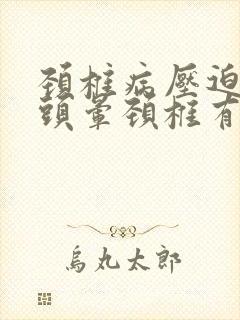 頚椎病壓迫
頭暈頚椎有
烏丸太郎